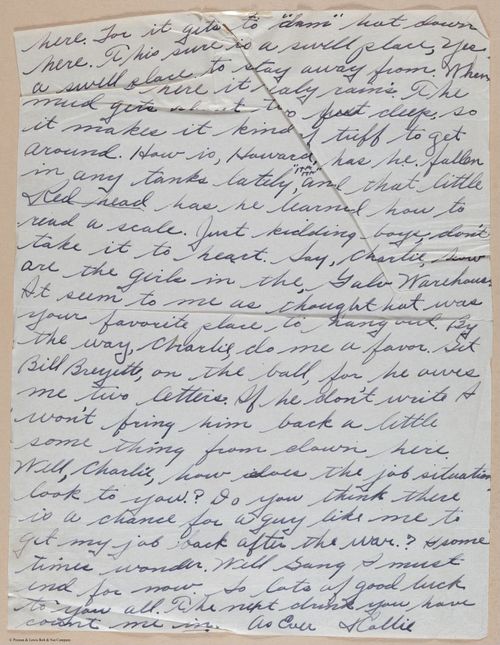 here. For it gets to "dam" hot down
here. This sure is a swell place, Yes
a swell place to stay away from. When
here it raly rains. The
mud gets about two feet deep, so
it makes it kind of tuff to get
around. How is, Howard, has he, fallen
in any tanks lately, and that little
Red head has he learned how to
read a scale. Just kidding boys, don't
take it to heart. Say, Charlie, how
are the girls in the, Galv Warehouse
It seem to me as thought hat was
your favorite place, to hang out, By
the way, Charlie, do me a favor. Get
Bill Breyette, on the ball, for he owes
me two letters. If he don't write I
won't fring him back a little
some thing from down here.
Well, Charlie, how does the job situation
look to you? Do you think there
is a chance for a guy like me to
get my job back after the war? I some
times wonder. Well Gang I must
end for now. So lots of good luck
to you all. The next drink you have
count me in. As Ever Rollie